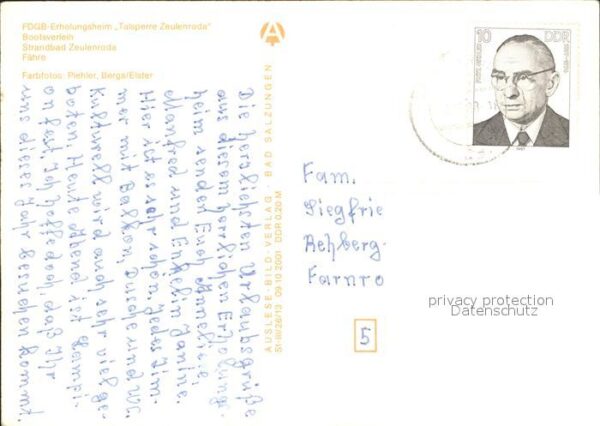 FDGB-Erholungsheim „Talsperre Zeulenroda"
Bootsverleih
Strandbad Zeulenroda
Fähre
Farbfotos: Piehler, Berga/Elster
Die herzlichsten Urlaubsgrüße
aus diesem herrlichen Erholungs-
heim senden Euch Annelies,
Manfred und Enkelin Janine.
Hier ist es sehr schön, jedes Zim-
mer mit Balkon, Dusche und WC.
Kulturell wird auch sehr viel ge-
boten. Heute Abend ist Lampi-
onfest. Ich hoffe doch, daß Ihr
uns dieses Jahr besuchen kommt.
AUSLESE-BILD-VERLAG · BAD SALZUNGEN
51-III/26/13 09 10 2001 DDR 0,20 M
10 DDR
1987
Fam.
Siegfried
Rehberg
Farnro
privacy protection
Datenschutz
5